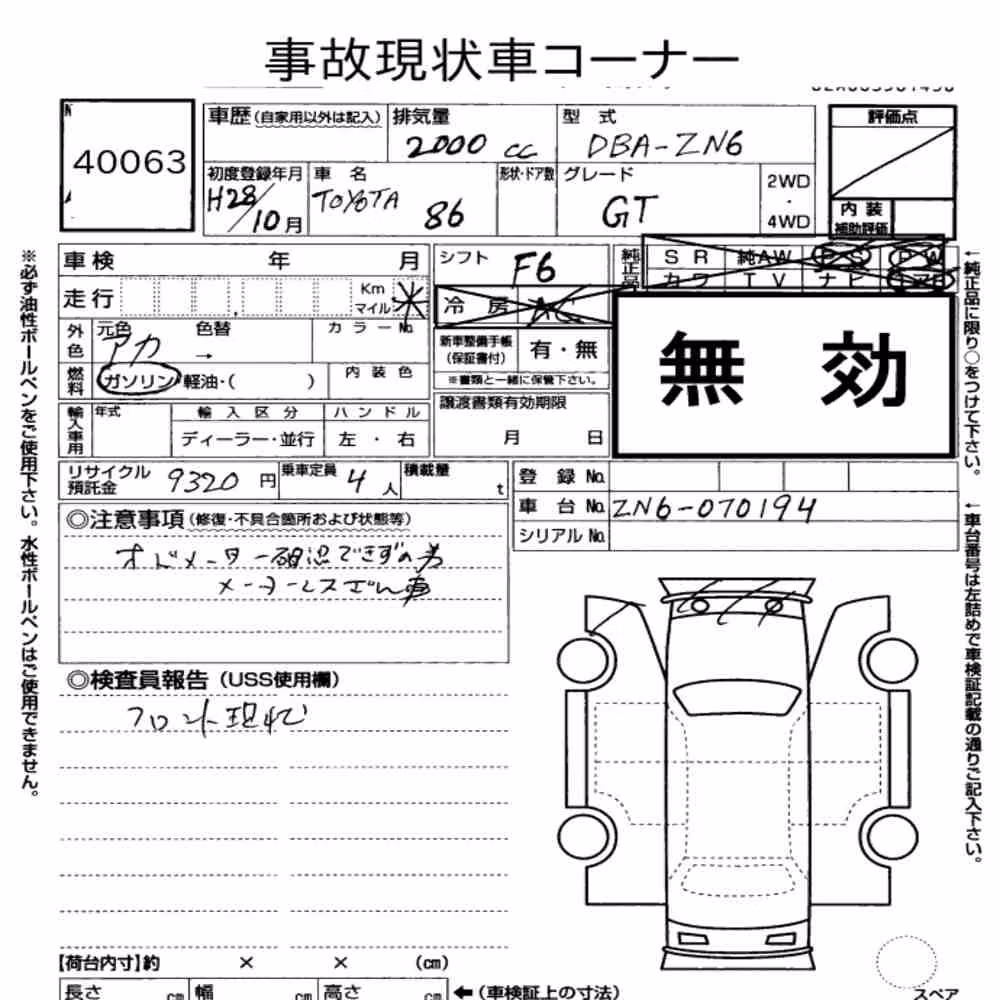 事故現状車コーナー
40063
車歴(自家用以外は記入) 排気量 型式 評価点
2000 cc DBA-ZN6
初度登録年月 車名 形状・ドア数 グレード 2WD・4WD 内装補助評価
H28/10月 TOYOTA 86 GT
車検 年 月 シフト F6 純正品 SR 純AW PS PW
カワ TV ナビ エアB
走行 Km マイル * 冷房 AC
外色 元色 色替 カラーNo.
アカ →
新車整備手帳(保証書付) 有・無
※書類と一緒に保管下さい。
無効
燃料 ガソリン・軽油・( ) 内装色
輸入車用 年式 輸入区分 ハンドル 譲渡書類有効期限
ディーラー・並行 左・右 月 日
リサイクル預託金 9320円 乗車定員 4人 積載量 t 登録No.
車台No. ZN6-070194
シリアルNo.
◎注意事項(修復・不具合箇所および状態等)
オドメーター確認できずの為
◎検査員報告(USS使用欄)
フロント現状
【荷台内寸】約 × × (cm)
長さ cm 幅 cm 高さ cm ←(車検証上の寸法)
スペア
※必ず油性ボールペンをご使用下さい。水性ボールペンはご使用できません。
←純正品に限り○をつけて下さい。
←車台番号は左詰めで車検証記載の通りご記入下さい。